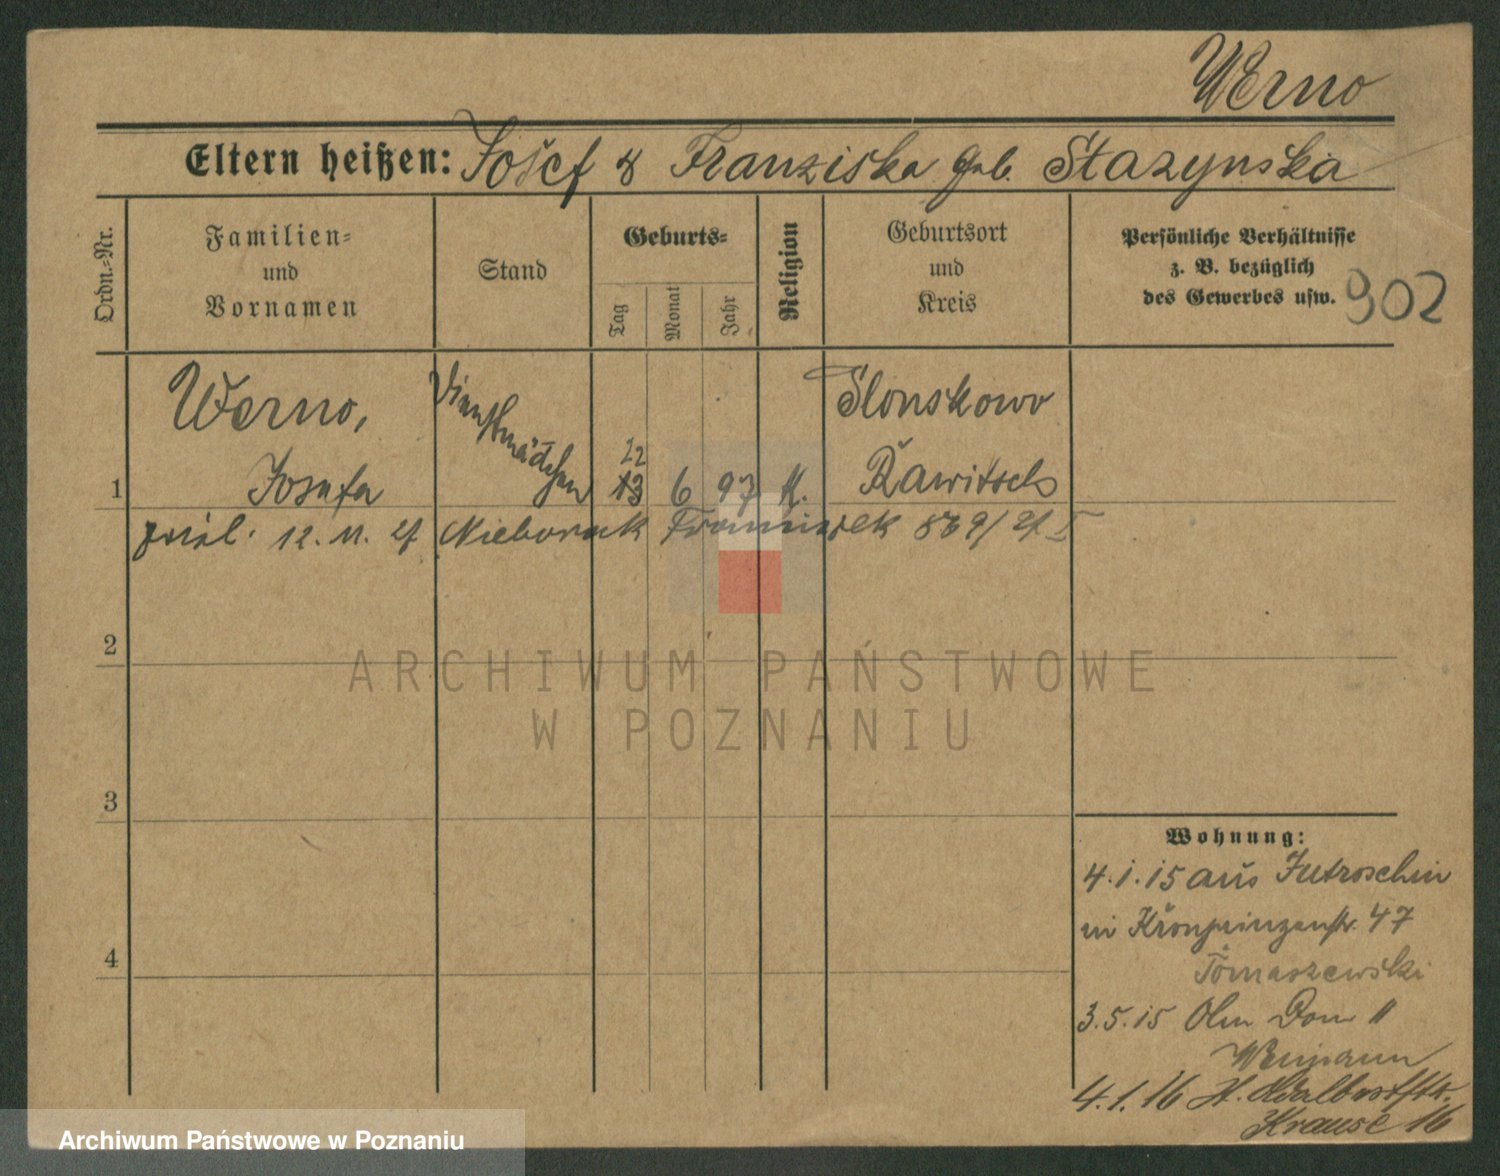 Werno
Eltern heißen: Josef & Franziska geb. Stazynska
Ordn.-Nr.
Familien-
und
Vornamen
Stand
Geburts-
Tag
Monat
Jahr
Religion
Geburtsort
und
Kreis
Persönliche Verhältnisse
z. B. bezüglich
des Gewerbes usw.
902
1
Werno,
Josefa
Dienstmädchen
22
13
6
97
K.
Slonskowo
Rawitsch
12. 11. 21 Nieborak Franciszek 839/21
2
3
4
Wohnung:
4.1.15 aus Jutroschin
in Kronprinzenstr. 47
Tomaszewski
3.5.15 Dom 11
4.1.16
Krause 16
ARCHIWUM PAŃSTWOWE
W POZNANIU
Archiwum Państwowe w Poznaniu